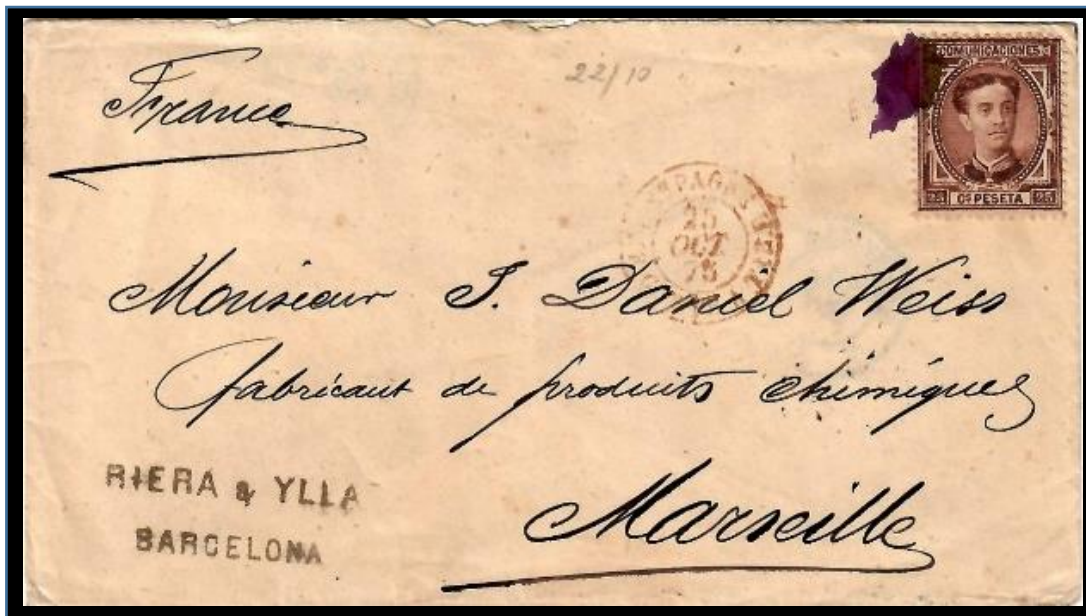 France
22/10
COMUNICACIONES
25 Cs PESETA 25
25
OCT
Monsieur J. Daniel Weiss
fabricant de produits chimiques
Marseille
RIERA & YLLA
BARCELONA